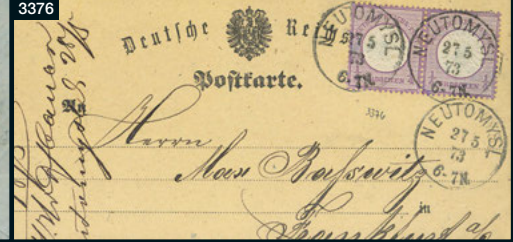 3376
Deutsche Reich
Postkarte.
NEUTOMYSL
27 5
73
6-7N.
NEUTOMYSL
27 5
73
6-7N.
3376
NEUTOMYSL
27 5
73
6-7N.
An
Herrn
Max Basswitz
in
Frankfurt a/o